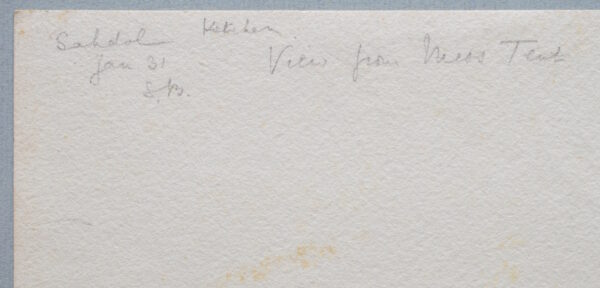 Sahdol Kitchen
View from Mess Tent
Jan 31
S.B.